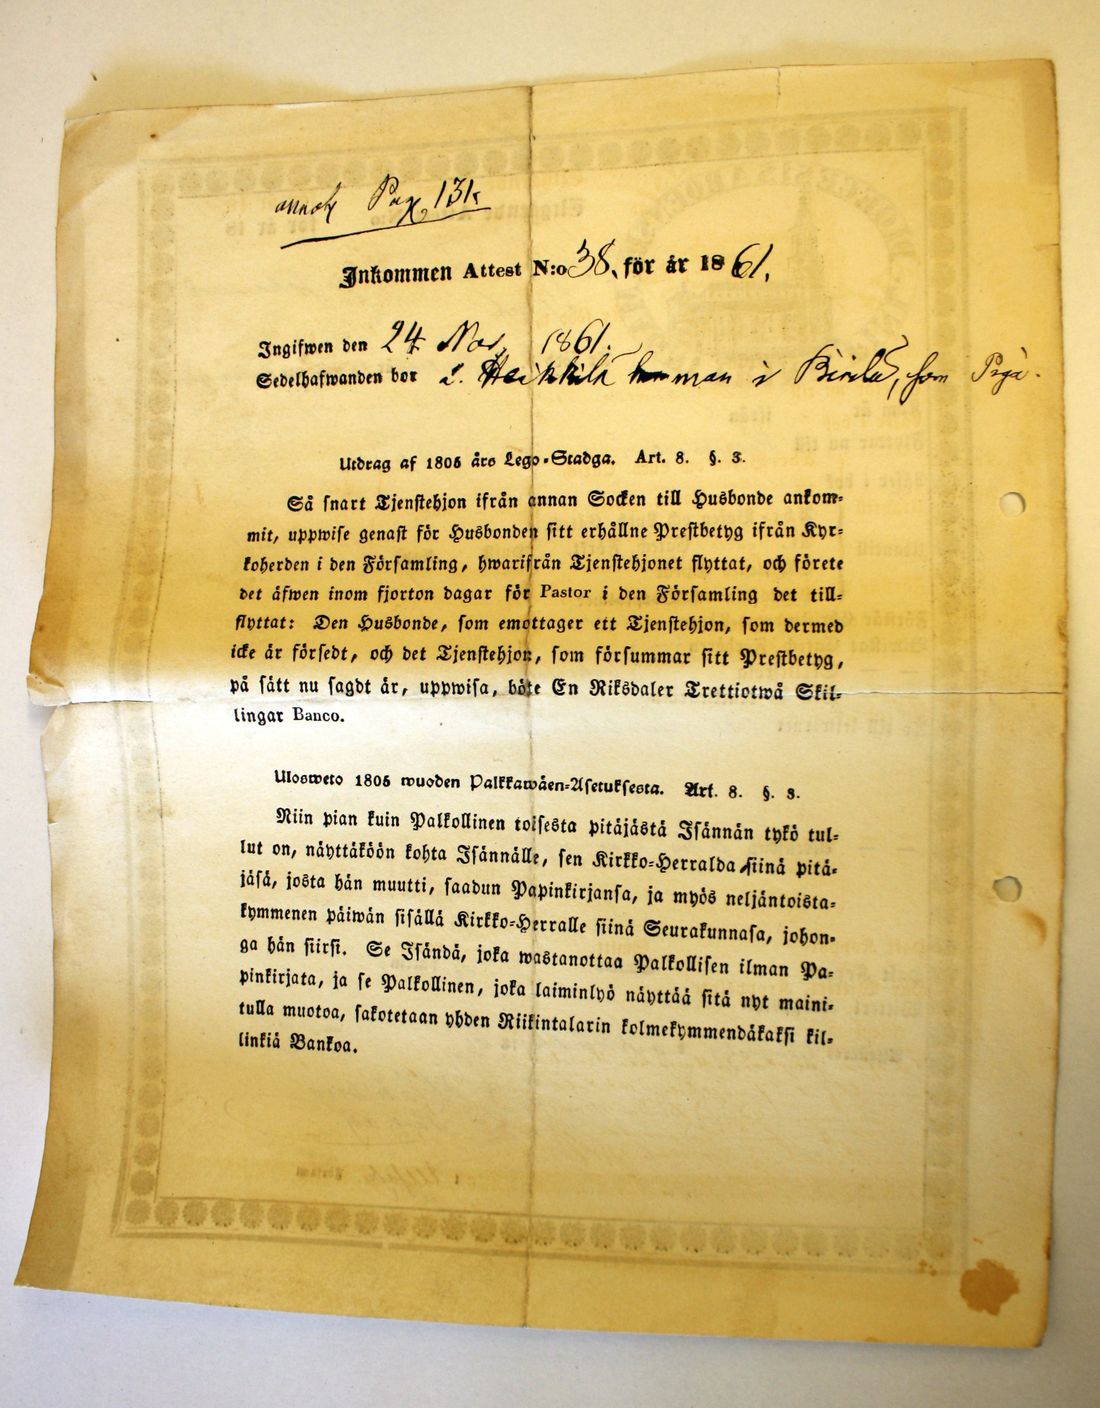 Pag. 131.
Inkommen Attest N:o 38. för år 1861.
Ingifwen den 24 Nov. 1861.
Sedelhafwanden bor Heikkilä man i Kirilä, som Piga.
Utdrag af 1805 års Lego-Stadga. Art. 8. §. 3.
Så snart Tjenstehjon ifrån annan Socken till Husbonde ankom-
mit, uppwise genast för Husbonden sitt erhållne Prestbetyg ifrån Kyr-
koherden i den Församling, hwarifrån Tjenstehjonet flyttat, och förete
det äfwen inom fjorton dagar för Pastor i den Församling det till-
flyttat: Den Husbonde, som emottager ett Tjenstehjon, som dermed
icke är försedt, och det Tjenstehjon, som försummar sitt Prestbetyg,
på sätt nu sagdt är, uppwisa, böte En Riksdaler Trettiotwå Skil-
lingar Banco.
Ulosweto 1805 wuoden Palkkawäen-Asetuksesta. Art. 8. §. 3.
Niin pian kuin Palkollinen toisesta pitäjästä Isännän tykö tul-
lut on, näyttäköön kohta Isännälle, sen Kirkko-Herralda siinä pitä-
jäsä, josta hän muutti, saadun Papinkirjansa, ja myös neljäntoista-
kymmenen päiwän sisällä Kirkko-Herralle siinä Seurakunnasa, johon-
ga hän siirsi. Se Isändä, joka wastanottaa Palkollisen ilman Pa-
pinkirjata, ja se Palkollinen, joka laiminlyö näyttää sitä nyt maini-
tulla muotoa, sakotetaan yhden Riikintalarin kolmekymmendäkaksi kil-
linkiä Bankoa.